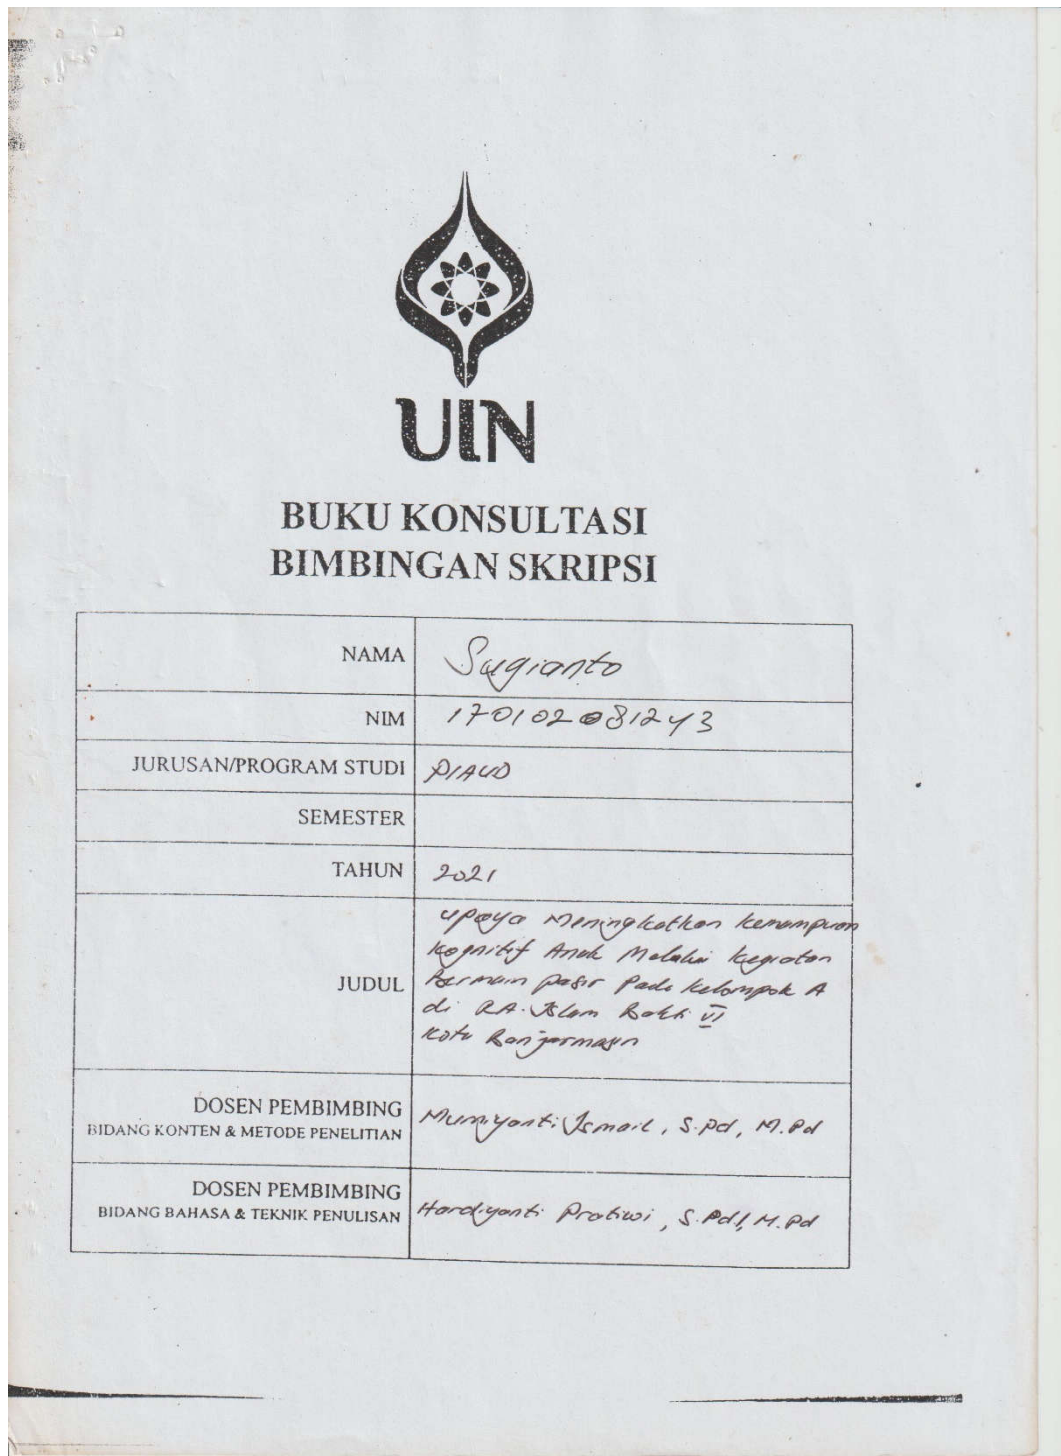 UIN
BUKU KONSULTASI
BIMBINGAN SKRIPSI
NAMA Sugianto
NIM 170102081243
JURUSAN/PROGRAM STUDI PIAUD
SEMESTER
TAHUN 2021
JUDUL
Upaya Meningkatkan Kemampuan
Kognitif Anak Melalui Kegiatan
Bermain pasir Pada Kelompok A
di RA. Islam Bakti VI
Kota Banjarmasin
DOSEN PEMBIMBING
BIDANG KONTEN & METODE PENELITIAN
Muniyanti Ismail, S.Pd, M.Pd
DOSEN PEMBIMBING
BIDANG BAHASA & TEKNIK PENULISAN
Hardiyanti Pratiwi, S.PdI, M.Pd